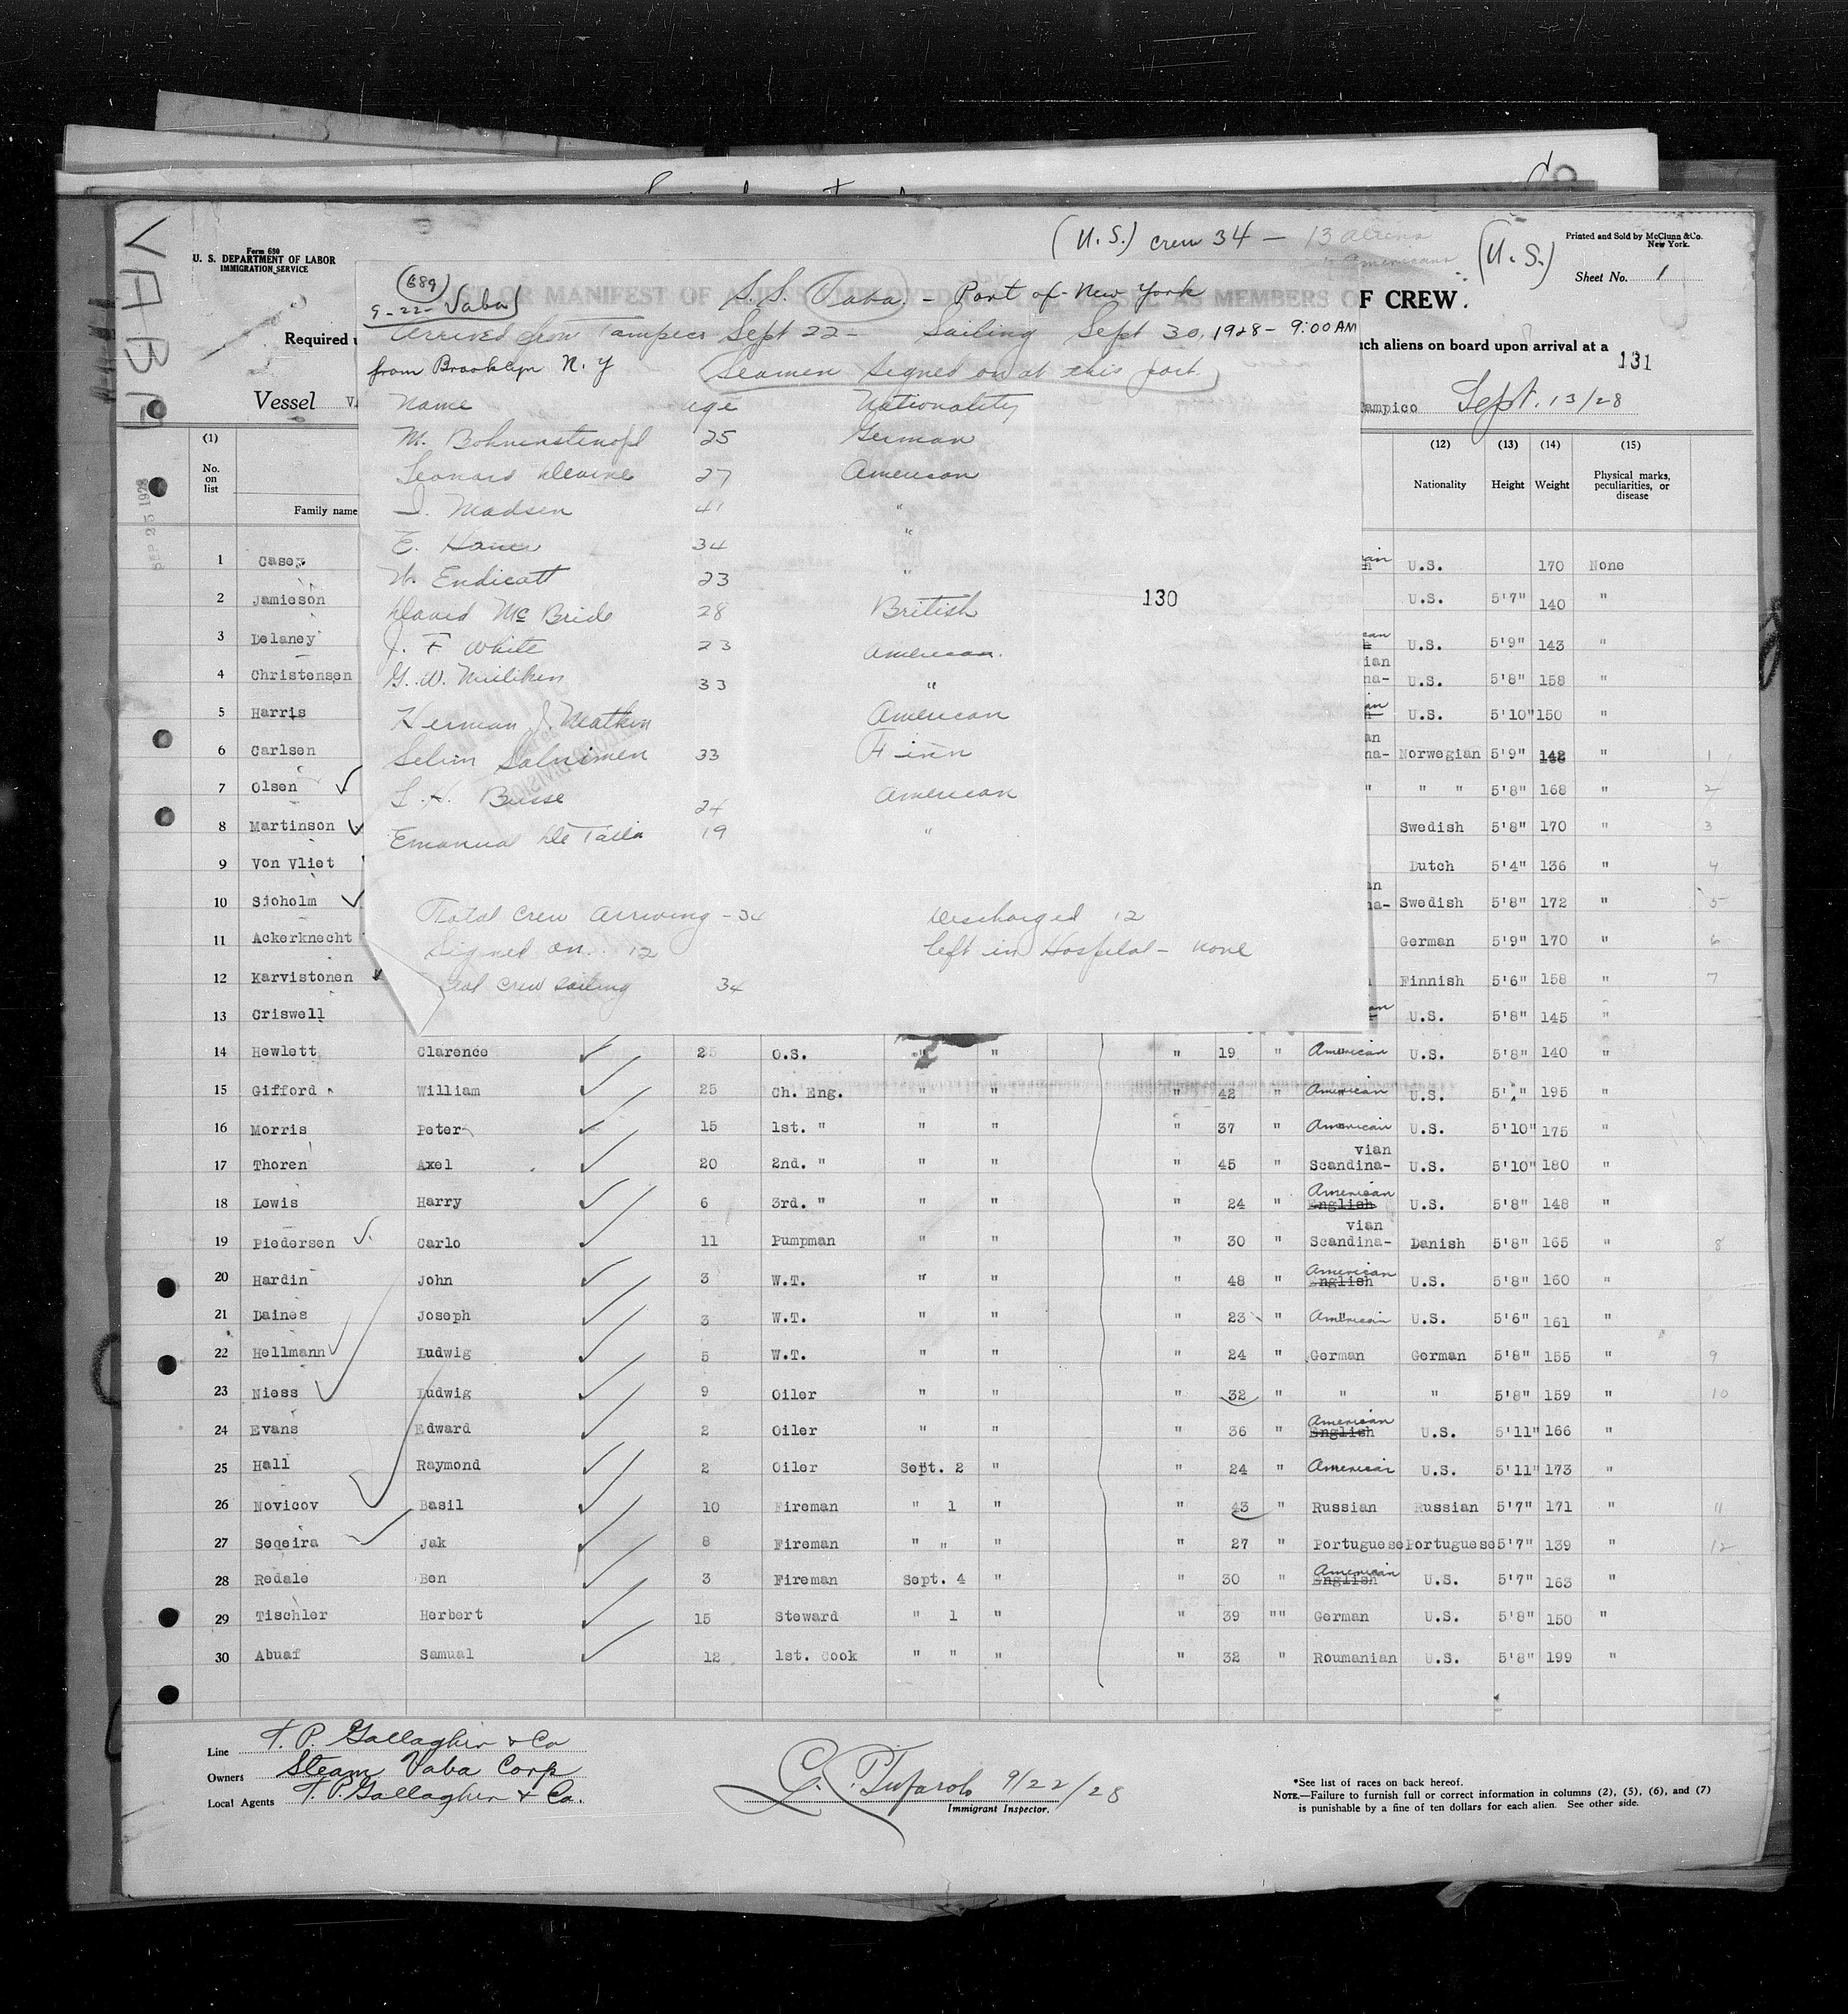 (U.S.) crew 34 — 13 aliens
Americans
(U.S.)
Printed and Sold by McClunn &Co.
New York.
Form 680
U. S. DEPARTMENT OF LABOR
IMMIGRATION SERVICE
Sheet No. 1
VABA
(689)
9-22- Vaba
S.S. Vaba. - Port of New York
F CREW.
Arrived from Tampico Sept 22 - Sailing Sept 30, 1928 - 9:00 AM
Required
uch aliens on board upon arrival at a
131
from Brooklyn N.Y
Seamen Signed on at this port
Vessel
Tampico Sept. 13/28
Name age Nationality
M. 25 German
Leonard Devine 27 American
J. Madsen 41 "
E. 34 "
W. Endicott 23 "
David Mc Bride 28 British
130
J. F White 23 American.
G. W. Milliken 33 "
Herman J. American
Selim Salmimen 33 Finn
L. H. Busse 24 American
Emanual 19 "
Total Crew Arriving - 34 Discharged 12
Signed on. 12 left in Hospital - none
Crew Sailing 34
SEP 25 1928
(1) (12) (13) (14) (15)
No. on list
Family name
Nationality Height Weight Physical marks, peculiarities, or disease
1 Casey U.S. 170 None
2 Jamieson U.S. 5'7" 140 "
3 Delaney U.S. 5'9" 143 "
4 Christensen U.S. 5'8" 158 "
5 Harris U.S. 5'10" 150 "
6 Carlsen Norwegian 5'9" " 1
7 Olsen " " 5'8" 168 " 2
8 Martinson Swedish 5'8" 170 " 3
9 Von Vliet Dutch 5'4" 136 " 4
10 Sjoholm Swedish 5'8" 172 " 5
11 Ackerknecht German 5'9" 170 " 6
12 Karvistonen Finnish 5'6" 158 " 7
13 Criswell U.S. 5'8" 145 "
14 Hewlett Clarence 25 O.S. " " " 19 " American U.S. 5'8" 140 "
15 Gifford William 25 Ch. Eng. " " " 42 " American U.S. 195 "
16 Morris Peter 15 1st. " " " " 37 " American U.S. 5'10" 175 "
17 Thoren Axel 20 2nd. " " " " 45 " Scandina-vian U.S. 5'10" 180 "
18 Lewis Harry 6 3rd. " " " " 24 " English American U.S. 5'8" 148 "
19 Piedersen Carlo 11 Pumpman " " " 30 " Scandina-vian Danish 5'8" 165 " 8
20 Hardin John 3 W.T. " " " 48 " English American U.S. 5'8" 160 "
21 Daines Joseph 3 W.T. " " " 23 " American U.S. 5'6" 161 "
22 Hellmann Ludwig 5 W.T. " " " 24 " German German 5'8" 155 " 9
23 Niess Ludwig 9 Oiler " " " 32 " " " 5'8" 159 " 10
24 Evans Edward 2 Oiler " " " 36 " English American U.S. 5'11" 166 "
25 Hall Raymond 2 Oiler Sept. 2 " " 24 " American U.S. 5'11" 173 "
26 Novicov Basil 10 Fireman " 1 " " 43 " Russian Russian 5'7" 171 " 11
27 Seqeira Jak 8 Fireman " " " " 27 " Portuguese Portuguese 5'7" 139 " 12
28 Redale Ben 3 Fireman Sept. 4 " " 30 " English American U.S. 5'7" 163 "
29 Tischler Herbert 15 Steward " 1 " " 39 "" German U.S. 5'8" 150 "
30 Abuaf Samual 12 1st. Cook " " " " 32 " Roumanian U.S. 5'8" 199 "
Line T. P. Gallagher & Co
Owners Steam Vaba Corp
Local Agents T. P. Gallagher & Co.
9/22/28
Immigrant Inspector.
*See list of races on back hereof.
NOTE.—Failure to furnish full or correct information in columns (2), (5), (6), and (7)
is punishable by a fine of ten dollars for each alien. See other side.